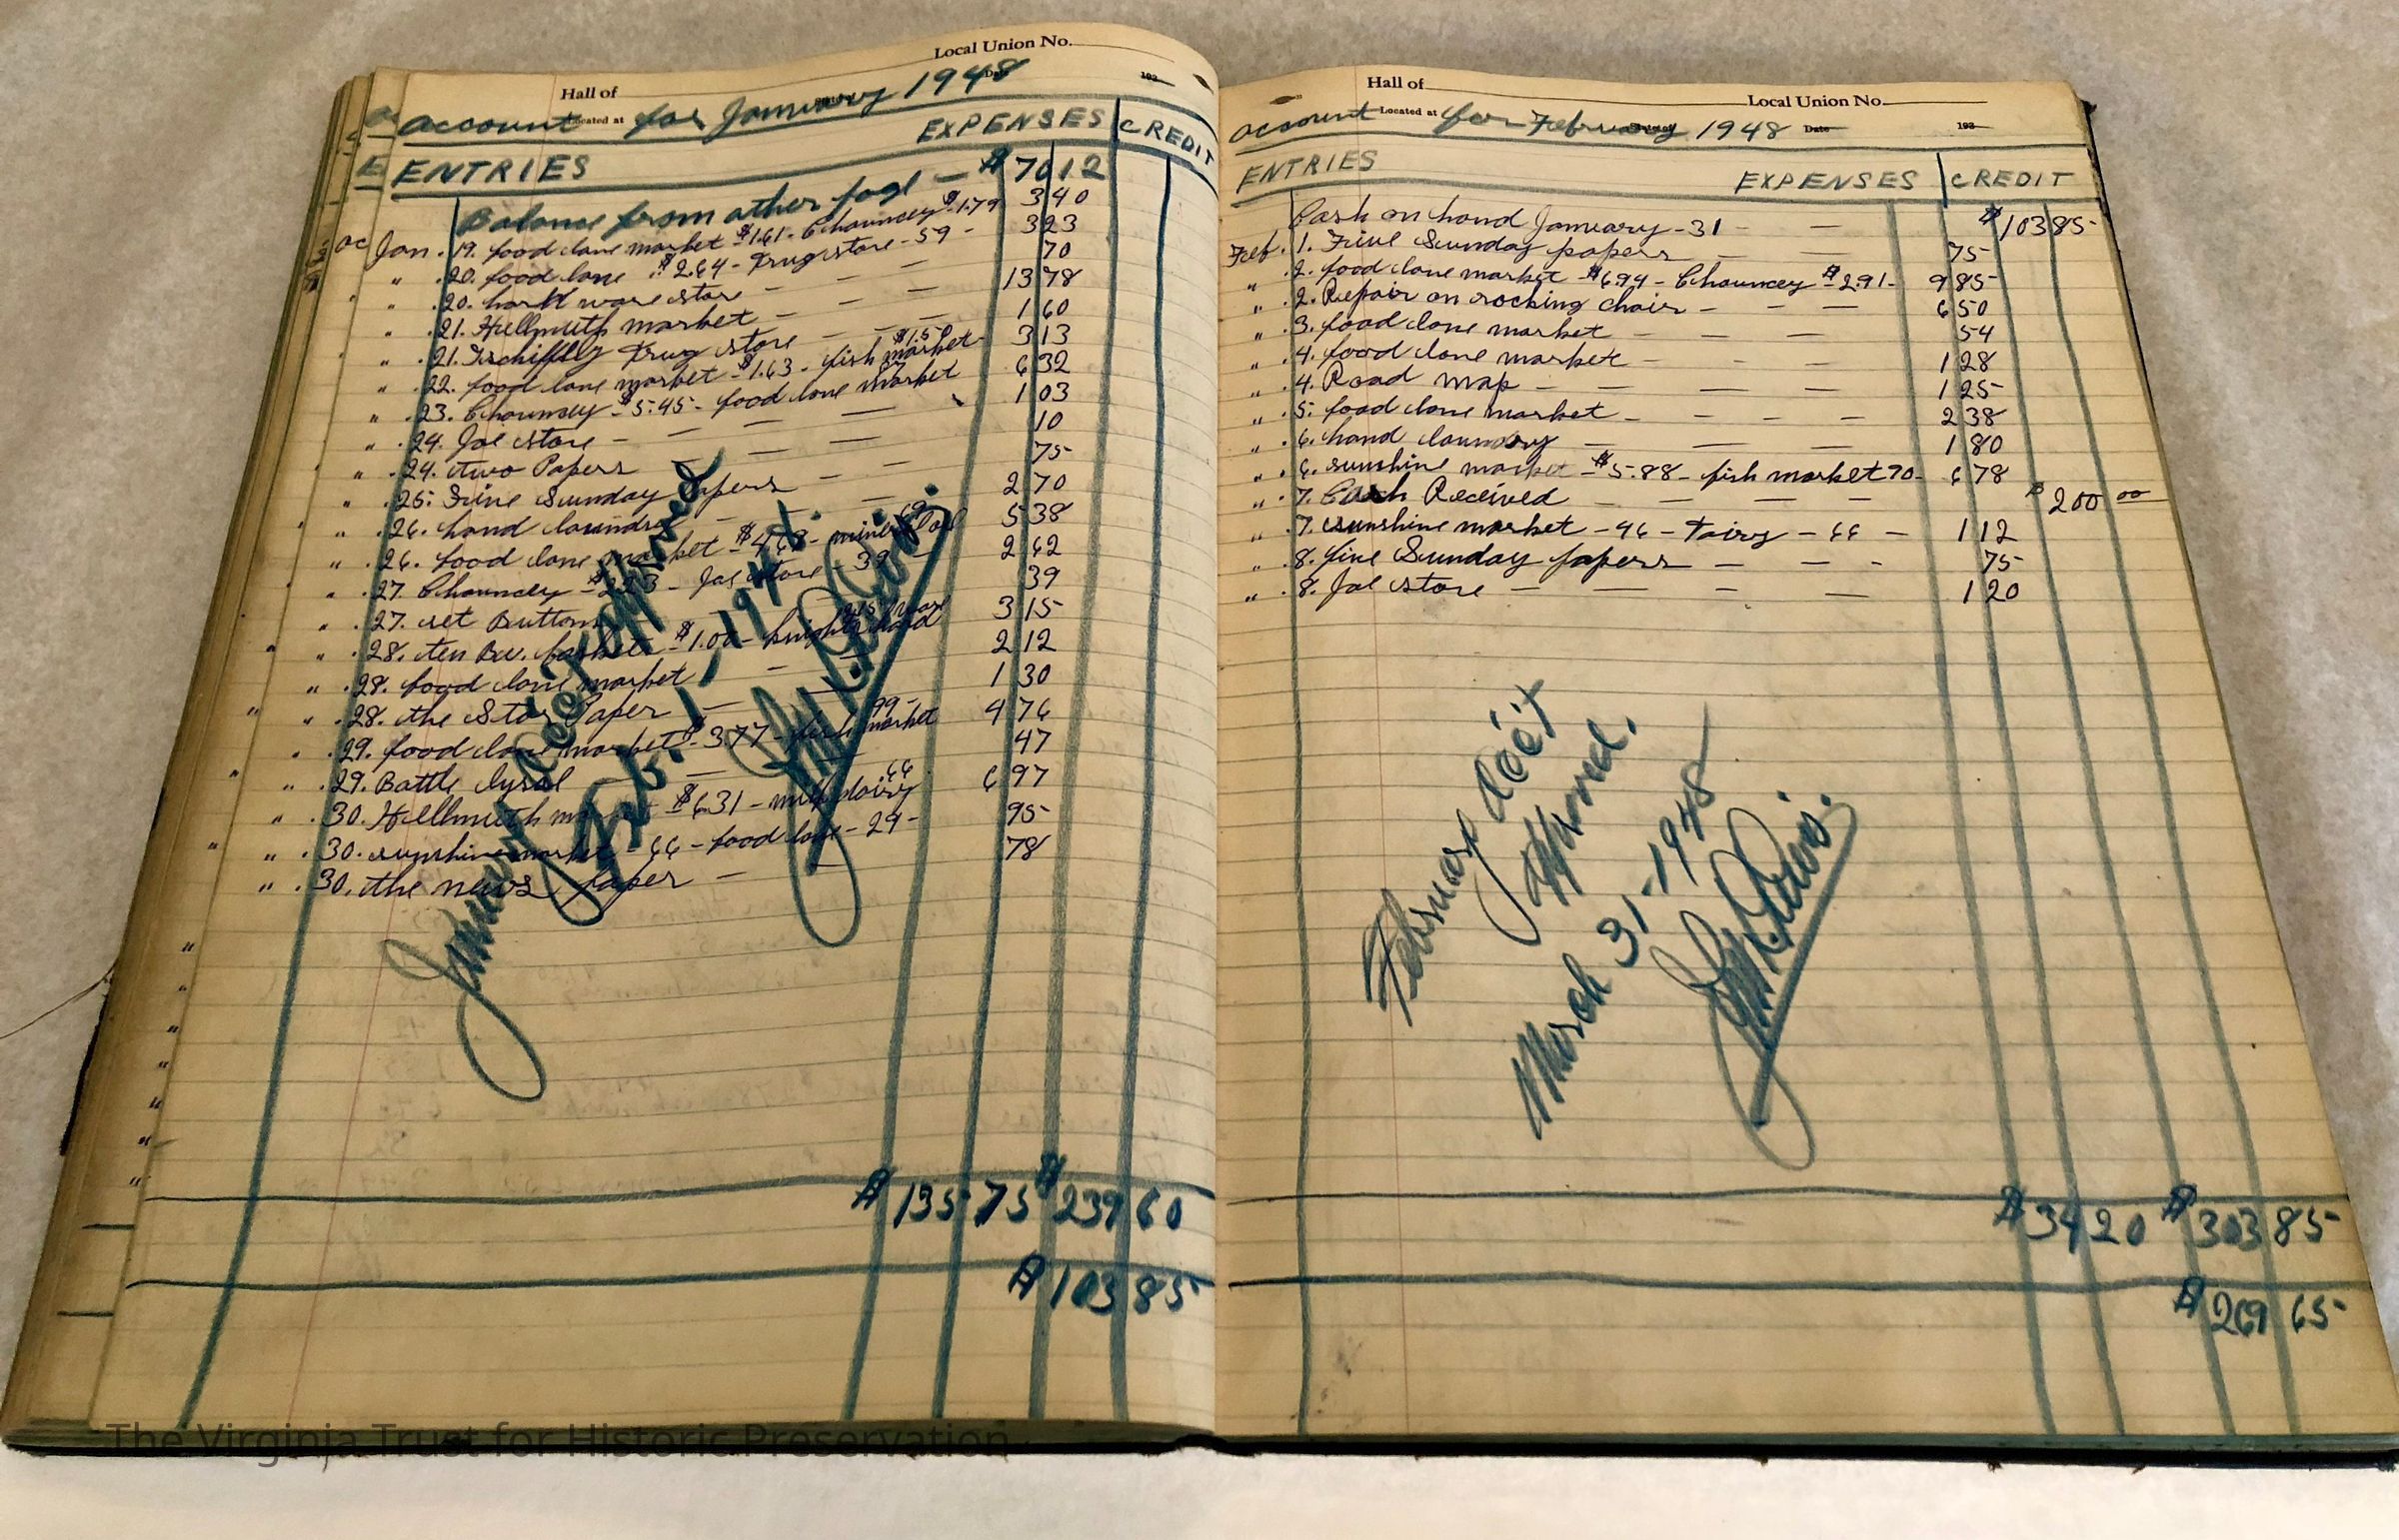 Local Union No.
Hall of
Date
193
Located at
account for January 1948
EXPENSES CREDIT
ENTRIES
Balance from other page — $ 70 12
Jan. 19. food lane market $1.61 - Chauncey $1.79 3 40
" .20. food lane $2.64 - Drug store - 59 - 3 23
" .20. hard ware store - — — 70
" .21. Hellmuth market — — — 13 78
" .21. Tschiffely Drug store — — — 1 60
" .22. food lane market - $1.63 - fish market $1.50 - 3 13
" .23. Chauncey - $5.45 - food lane market 87 6 32
" .24. Joe store - — — — 1 03
" .24. two Papers — — — 10
" .25. Five Sunday Papers — — 75
" .26. hand laundry — — 2 70
" .26. food lane market - $4.69 - mineral oil 69 5 38
" .27. Chauncey - $2.23 - Joe store - 39 - 2 62
" .27. set Buttons — 39
" .28. ten market - $1.00 - 3 15
" .28. food lane market — — 2 12
" .28. the Star Paper — — 1 30
" .29. food lane market - $3.77 - fish market 99 - 4 76
" .29. Bottle lysol — — 47
" .30. Hellmuth market - $6.31 - milk dairy .66 6 97
" .30. sunshine market - 66 - food lane - 29 - 95
" .30. the news paper — — 78
January acc't approved
Feb. 1, 1948.
$ 135 75 $ 239 60
$ 103 85
Hall of
Local Union No.
Located at
Date
193
account for February 1948
ENTRIES
EXPENSES CREDIT
Cash on hand January - 31 — — $ 103 85
Feb. 1. Five Sunday papers — — 75
" .2. food lane market - $6.94 - Chauncey - $2.91 - 9 85
" .2. Repair on rocking chair - — — 6 50
" .3. food lane market — — 54
" .4. food lane market - - — 1 28
" .4. Road map - — — — 1 25
" .5. food lane market - - - - 2 38
" .6. hand laundry — — — 1 80
" .6. sunshine market - $5.88 - fish market 90 - 6 78
" .7. Cash Received — — — — $ 200 00
" .7. sunshine market - 46 - Dairy - 66 — 1 12
" .8. five Sunday papers — — - 75
" .8. Joe store — — - — 1 20
February acc't
March 31 - 1948
$ 34 20 $ 303 85
$ 269 65
The Virginia Trust for Historic Preservation